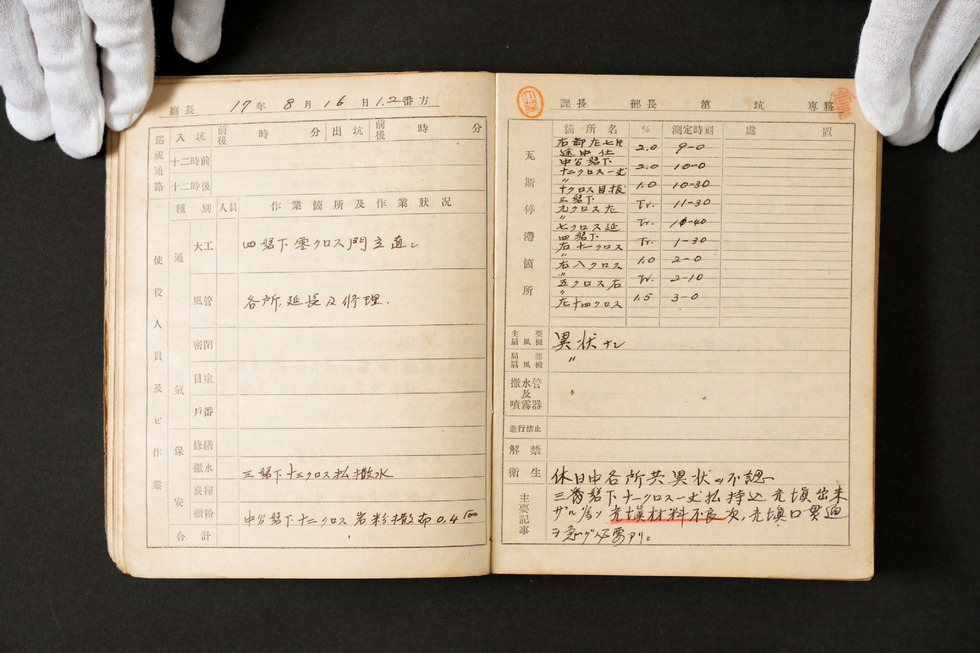 副長 17年 8月 16日 1.2番方
巡視通路 入坑 前後 時 分 出坑 前後 時 分
十二時前
十二時後
使役人員及ビ作業
種別 人員 作業箇所及作業狀况
通氣
大工 四昇下零クロス門立直シ
風管 各所延長及修理.
密閉
目塗
戶番
保安
修繕
撒水 三昇下十三クロス払撒水
炭掃
撒粉 中分昇下十二クロス岩粉撒布0.4
合計
課長 部長 第 坑 專務
瓦斯停滯箇所
箇所名 % 測定時刻 處置
右部左七片
途中仕 2.0 9-0
中分昇下
十二クロス一丈 2.0 10-0
〃
十クロス目抜 1.0 10-30
三昇下
九クロス左 Tr. 11-30
〃
七クロス延 Tr. 11-40
四昇下
右十一クロス Tr. 1-30
〃
右八クロス 1.0 2-0
〃
五クロス右 Tr. 2-10
〃
左十四クロス 1.5 3-0
主要扇風機 異状ナシ
局部扇風機 〃
撒水管及噴霧器 〃
進行禁止
解禁
衛生 休日中各所共異状ヲ不認
主要記事
三番昇下十一クロス一丈払持込充塡出来
ザル為メ充塡材料不良次,充塡口貫通
ヲ急グ必要アリ。